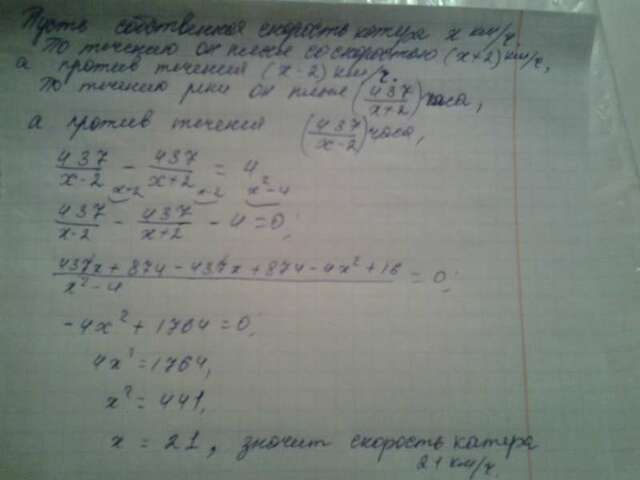 Пусть собственная скорость катера x км/ч.
По течению он плыл со скоростью (x+2) км/ч,
а против течения (x-2) км/ч.
По течению реки он плыл (437/x+2) часа,
а против течения (437/x-2) часа,
437/x-2 - 437/x+2 = 4
x+2 x-2 x²-4
437/x-2 - 437/x+2 - 4 = 0;
437x + 874 - 437x + 874 - 4x² + 16 / x² - 4 = 0;
-4x² + 1764 = 0;
4x² = 1764,
x² = 441,
x = 21, значит скорость катера
21 км/ч.